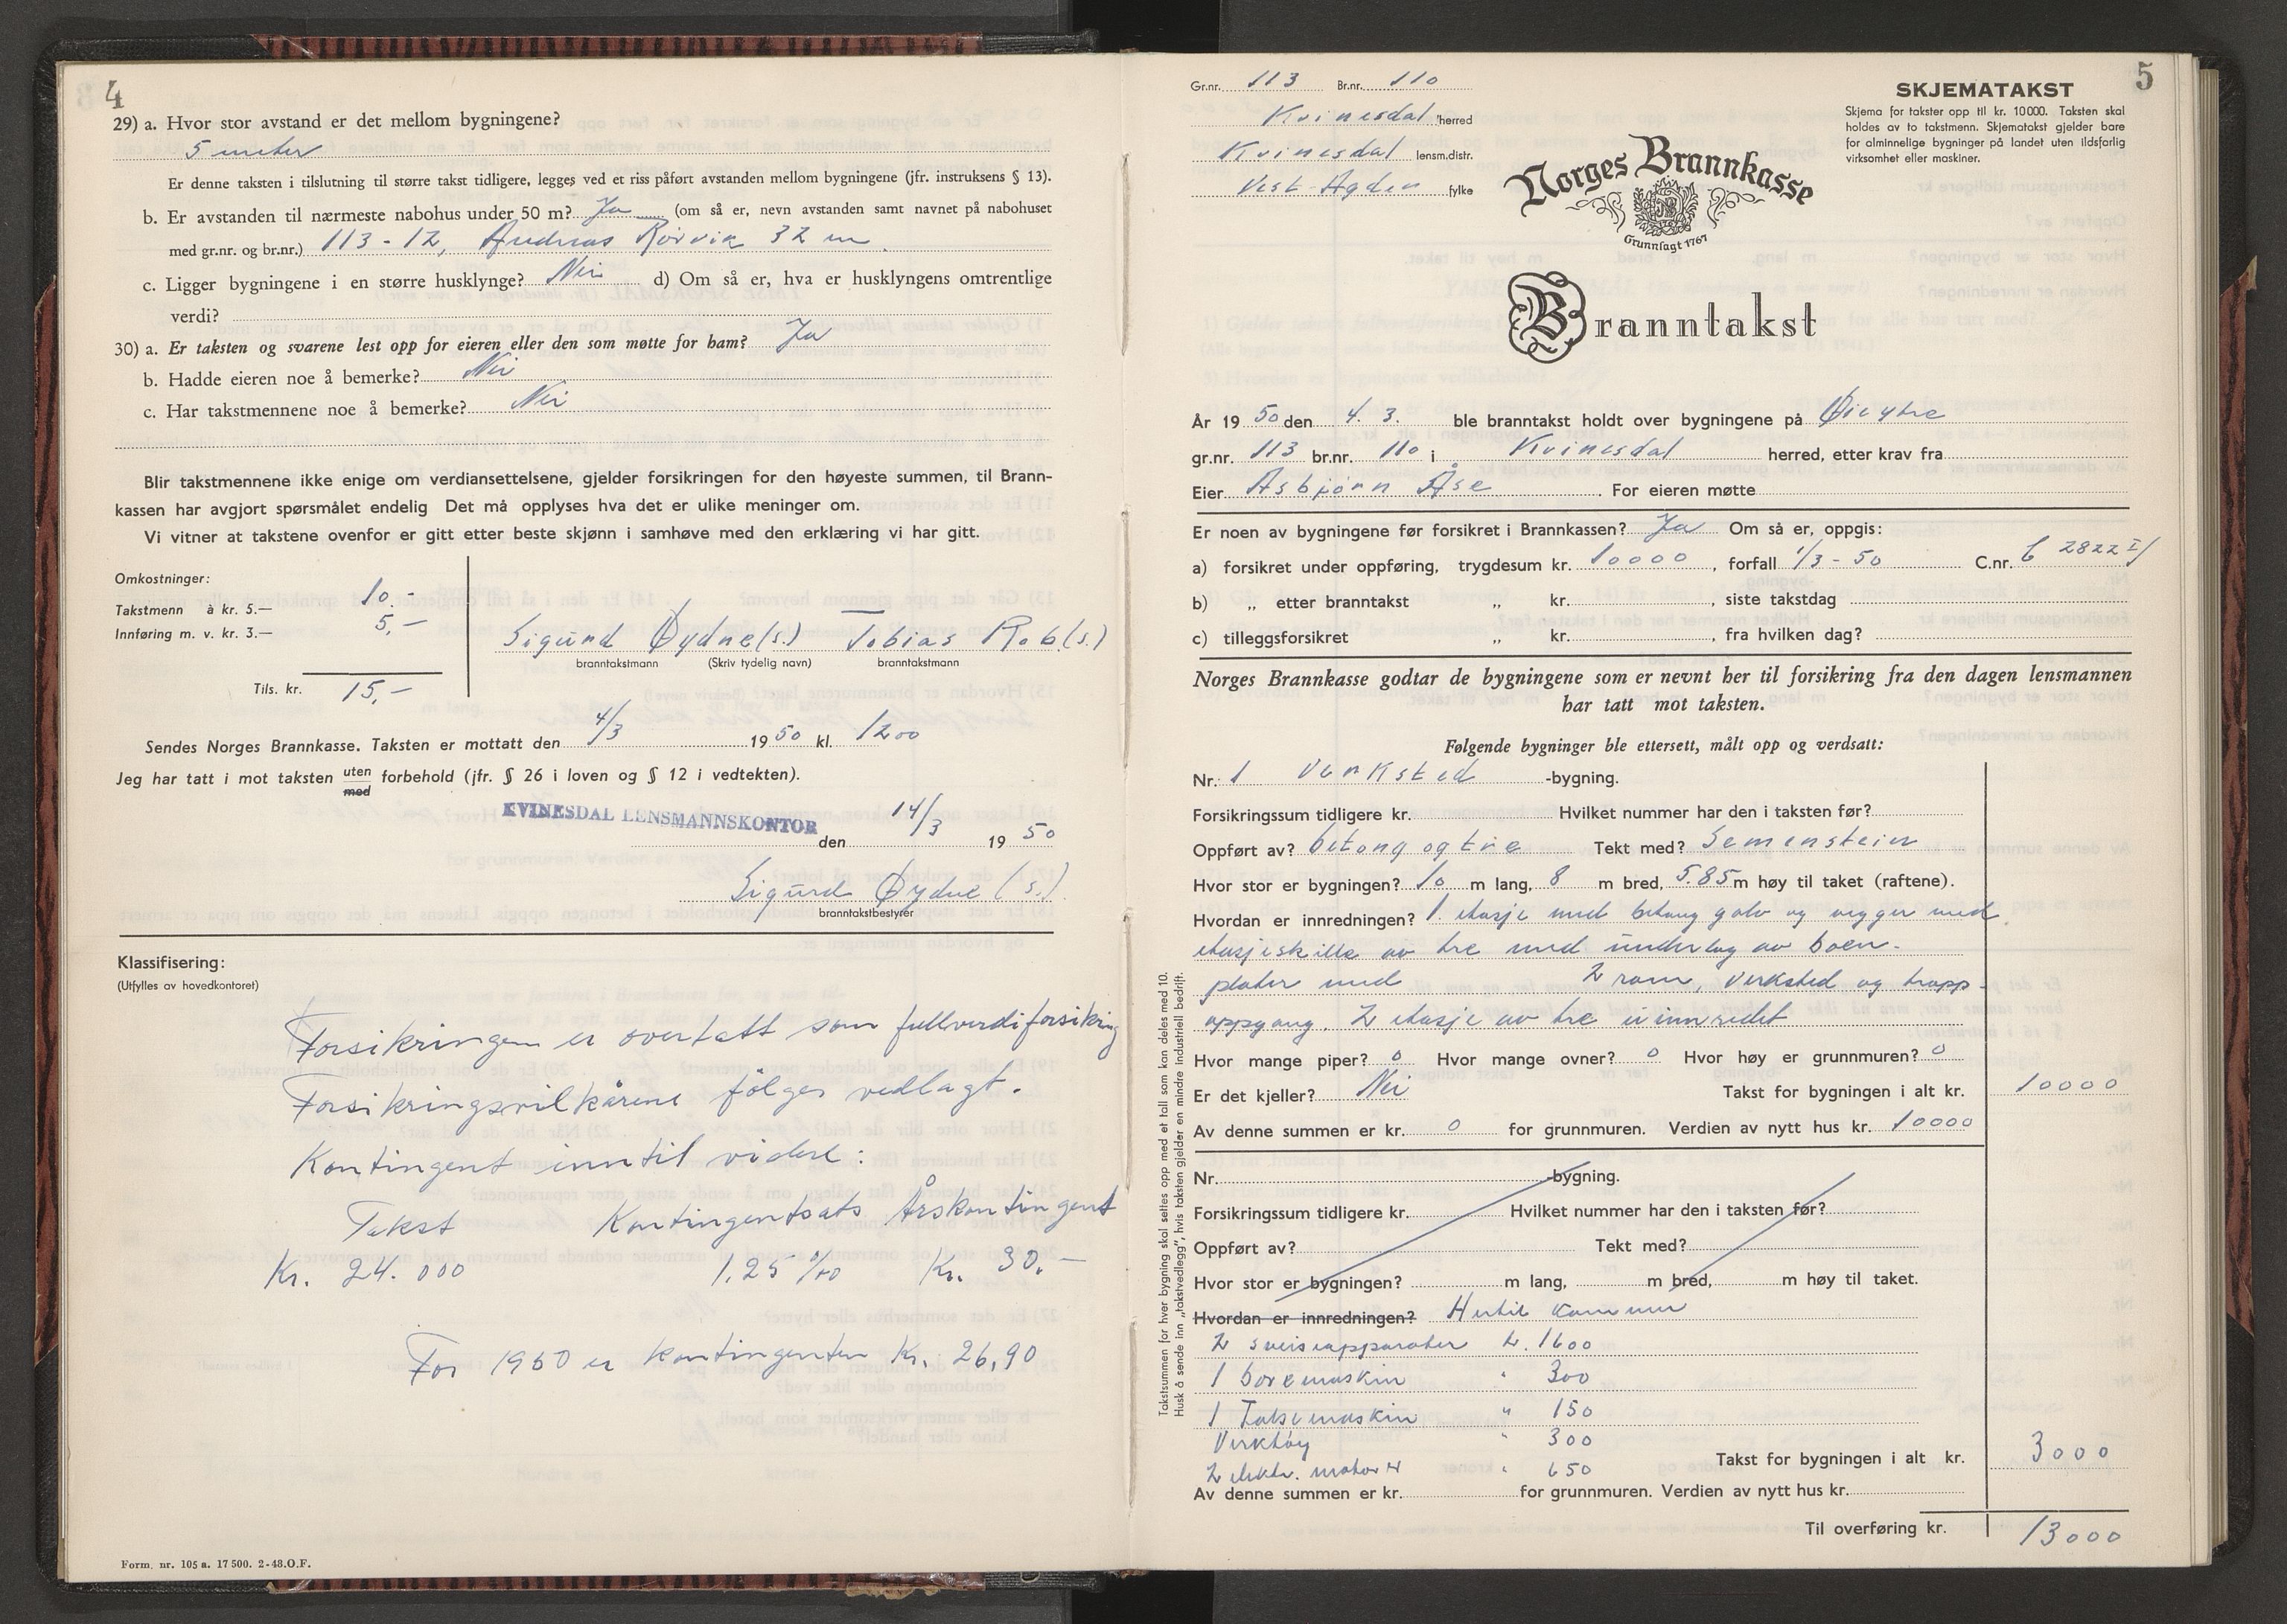 4
29) a. Hvor stor avstand er det mellom bygningene?
5 meter
Er denne taksten i tilslutning til større takst tidligere, legges ved et riss påført avstanden mellom bygningene (jfr. instruksens § 13).
b. Er avstanden til nærmeste nabohus under 50 m? Ja (om så er, nevn avstanden samt navnet på nabohuset
med gr.nr. og br.nr.) 113-12, Andreas Rørvik 32 m.
c. Ligger bygningene i en større husklynge? Nei d) Om så er, hva er husklyngens omtrentlige
verdi?
30) a. Er taksten og svarene lest opp for eieren eller den som møtte for ham? Ja
b. Hadde eieren noe å bemerke? Nei
c. Har takstmennene noe å bemerke? Nei
Blir takstmennene ikke enige om verdiansettelsene, gjelder forsikringen for den høyeste summen, til Brann-
kassen har avgjort spørsmålet endelig Det må opplyses hva det er ulike meninger om.
Vi vitner at takstene ovenfor er gitt etter beste skjønn i samhøve med den erklæring vi har gitt.
Omkostninger:
Takstmenn à kr. 5.— 10.-
Innføring m. v. kr. 3.— 5,—
Sigurd Øydne (s.) Tobias Rob.(s.)
branntakstmann (Skriv tydelig navn) branntakstmann
Tils. kr. 15,-
Sendes Norges Brannkasse. Taksten er mottatt den 4/3 1950 kl. 12 00
Jeg har tatt i mot taksten uten med forbehold (jfr. § 26 i loven og § 12 i vedtekten).
KVINESDAL LENSMANNSKONTOR den 14/3 1950
Sigurd Øydne (s.)
branntakstbestyrer
Klassifisering:
(Utfylles av hovedkontoret)
Forsikringen er overtatt som fullverdiforsikring
Forsikringsvilkårene følger vedlagt.
Kontingent inntil videre:
Takst Kontingentsats Årskontingent
Kr. 24.000 1,25 0/00 Kr. 30.—
For 1950 er kontingenten Kr. 26,90
Form. nr. 105 a. 17 500. 2-48.O.F.
5
Gr.nr. 113 Br.nr. 110
Kvinesdal herred
Kvinesdal lensm.distr.
Vest-Agder fylke
SKJEMATAKST
Skjema for takster opp til kr. 10000. Taksten skal
holdes av to takstmenn. Skjematakst gjelder bare
for alminnelige bygninger på landet uten ildsfarlig
virksomhet eller maskiner.
Norges Brannkasse
Grunnlagt 1767
Branntakst
År 1950 den 4. 3. ble branntakst holdt over bygningene på Øie ytre
gr.nr. 113 br.nr. 110 i Kvinesdal herred, etter krav fra
Eier Asbjørn Åse For eieren møtte
Er noen av bygningene før forsikret i Brannkassen? Ja Om så er, oppgis:
a) forsikret under oppføring, trygdesum kr. 10000, forfall 1/3-50 C.nr. C 2822 I/
b) „ etter branntakst „ kr. , siste takstdag
c) tilleggsforsikret „ kr. , fra hvilken dag?
Norges Brannkasse godtar de bygningene som er nevnt her til forsikring fra den dagen lensmannen
har tatt mot taksten.
Følgende bygninger ble ettersett, målt opp og verdsatt:
Nr. 1 Verksted -bygning.
Forsikringssum tidligere kr. Hvilket nummer har den i taksten før?
Oppført av? betong og tre Tekt med? Sementstein
Hvor stor er bygningen? 10 m lang, 8 m bred, 5.85 m høy til taket (raftene).
Hvordan er innredningen? 1. etasje med betong golv og vegger med
etasjeskille av tre med underlag av boen-
plater med 2 rom, verksted og trapp-
oppgang. 2 etasje av tre uinnredet
Hvor mange piper? 0 Hvor mange ovner? 0 Hvor høy er grunnmuren? 0
Er det kjeller? Nei Takst for bygningen i alt kr. 10000
Av denne summen er kr. 0 for grunnmuren. Verdien av nytt hus kr. 10000
Nr. -bygning.
Forsikringssum tidligere kr. Hvilket nummer har den i taksten før?
Oppført av? Tekt med?
Hvor stor er bygningen? m lang, m bred, m høy til taket.
Hvordan er innredningen? Hertil kommer
2 sveiseapparater kr. 1600
1 boremaskin " 300
1 " 150
Verktøy " 300
2 elektr. motorer " 650
Takst for bygningen i alt kr. 3000
Av denne summen er kr. for grunnmuren. Verdien av nytt hus kr.
Til overføring kr. 13000
Takstsummen for hver bygning skal settes opp med et tall som kan deles med 10.
Husk å sende inn „takstvedlegg", hvis taksten gjelder en mindre industriell bedrift.